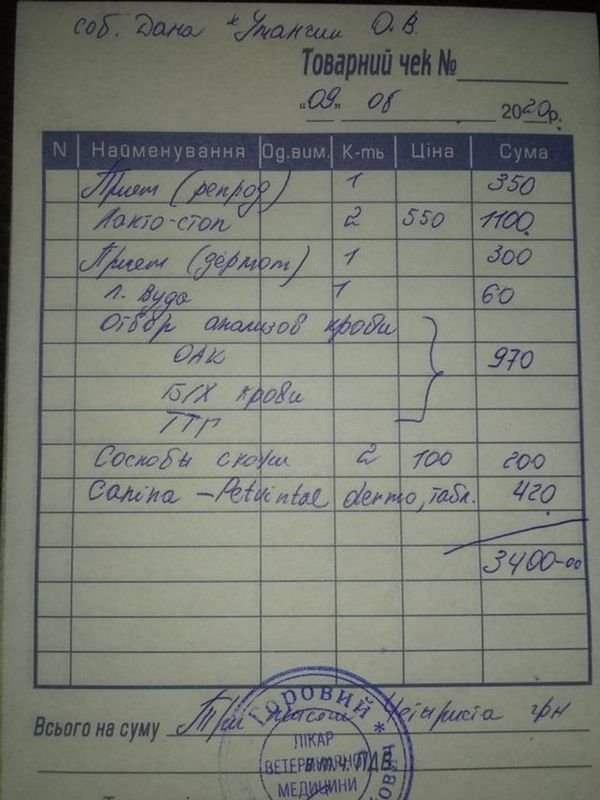 соб. Дана * О.В.
Товарний чек №
"09" 06 2020р.
N Найменування Од.вим. К-ть Ціна Сума
Прием (репрод) 1 350
Лакто-стоп 2 550 1100
Прием (дермат) 1 300
Л. Вуда 1 60
Отбор анализов крови
ОАК 970
Б/Х крови
Соскобы с кожи 2 100 200
Canina - Petvital dermo, табл. 420
3400-00
Всього на суму Три тысячи четыриста грн
в т.ч. ПДВ
Горовий *
ЛІКАР
ВЕТЕРИНАРНОЇ
МЕДИЦИНИ